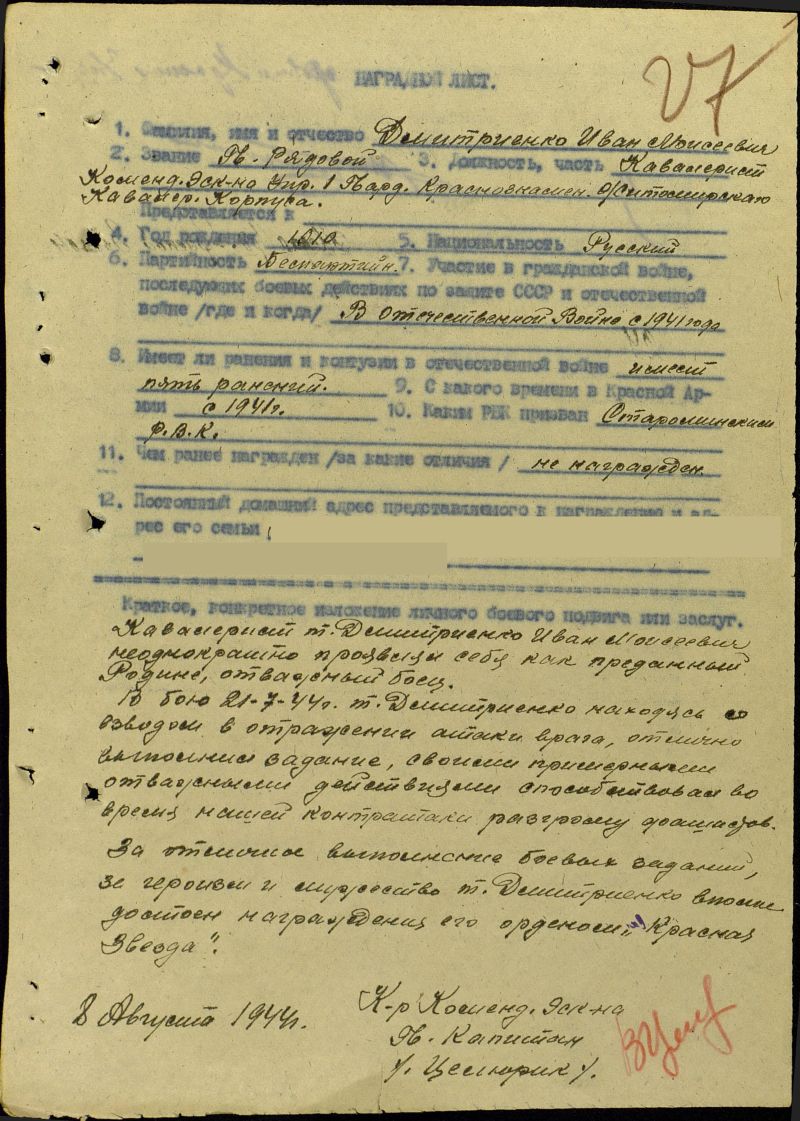 27
НАГРАДНОЙ ЛИСТ.
1. Фамилия, имя и отчество Дмитриенко Иван Моисеевич
2. Звание Гв. Рядовой 3. Должность, часть Кавалерист
Коменд. Эск-на Упр. 1 Гвард. Краснознамен. Житомирского
Кавалер. Корпуса.
Представляется к
4. Год рождения 1910 5. Национальность Русский
6. Партийность Беспартийн. 7. Участие в гражданской войне,
последующих боевых действиях по защите СССР и отечественной
войне /где и когда/ В Отечественной Войне с 1941 года
8. Имеет ли ранения и контузии в отечественной войне имеет
пять ранений. 9. С какого времени в Красной Ар-
мии с 1941г. 10. Каким РВК призван Староминским
Р.В.К.
11. Чем ранее награжден /за какие отличия/ не награжден.
12. Постоянный домашний адрес представляемого к награждению и ад-
рес его семьи
Краткое, конкретное изложение личного боевого подвига или заслуг.
Кавалерист т. Дмитриенко Иван Моисеевич
неоднократно проявил себя как преданный
Родине, отважный боец.
В бою 21-7-44г. т. Дмитриенко находясь со
взводом в отражении атаки врага, отлично
выполнил задание, своими примерными
отважными действиями способствовал во
время нашей контратаки разгрому фашистов.
За отличное выполнение боевых заданий,
за героизм и мужество т. Дмитриенко вполне
достоин награждения его орденом „Красная
Звезда".
8 Августа 1944г.
К-р Коменд. Эск-на
Гв. Капитан
/. Целюрик /.